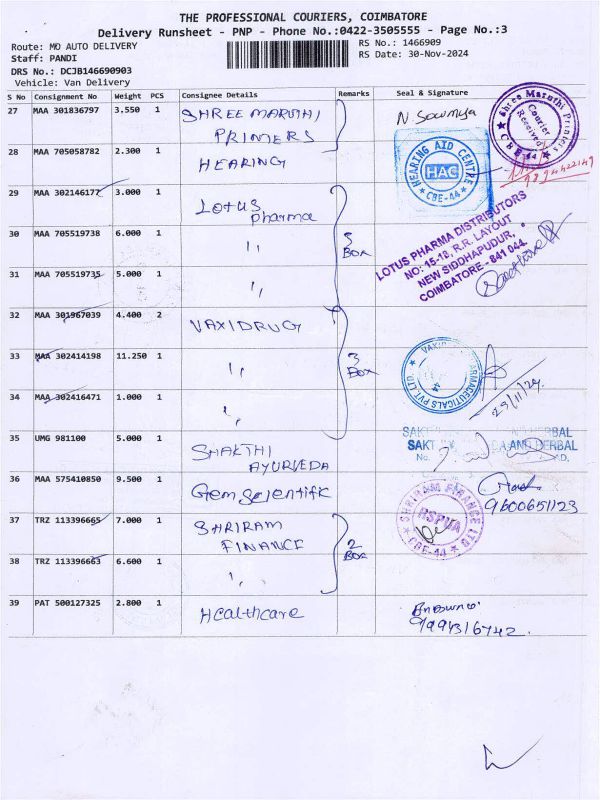 THE PROFESSIONAL COURIERS, COIMBATORE
Delivery Runsheet - PNP - Phone No.:0422-3505555 - Page No.:3
Route: MO AUTO DELIVERY
RS No.: 1466909
Staff: PANDI
RS Date: 30-Nov-2024
DRS No.: DCJB146690903
Vehicle: Van Delivery
S No Consignment No Weight PCS Consignee Details Remarks Seal & Signature
27 MAA 301836797 3.550 1 SHREE MARUTHI PRINTERS N Sowmya
Shree Maruthi Printers
Courier Received
CBE-44
28 MAA 705058782 2.300 1 HEARING
HEARING AID CENTRE
HAC
CBE-44
29 MAA 302146177 3.000 1 Lotus pharma
30 MAA 705519738 6.000 1 " 3 BOX
31 MAA 705519735 5.000 1 "
LOTUS PHARMA DISTRIBUTORS
NO: 15-18, R.R. LAYOUT
NEW SIDDHAPUDUR,
COIMBATORE - 641 044.
32 MAA 301967039 4.400 2 VAXIDRUG
33 MAA 302414198 11.250 1 " 3 BOX
34 MAA 302416471 1.000 1 "
29/11/24
35 UMG 981100 5.000 1 SHAKTHI AYURVEDA
HERBAL
SAKT DA AND HERBAL
No.
36 MAA 575410850 9.500 1 Gem scientifik
9600651123
37 TRZ 113396665 7.000 1 SHRIRAM FINANCE 2 BOX
38 TRZ 113396663 6.600 1 "
SHRIRAM FINANCE LTD
CBE-44
39 PAT 500127325 2.800 1 Healthcare
9994316742.